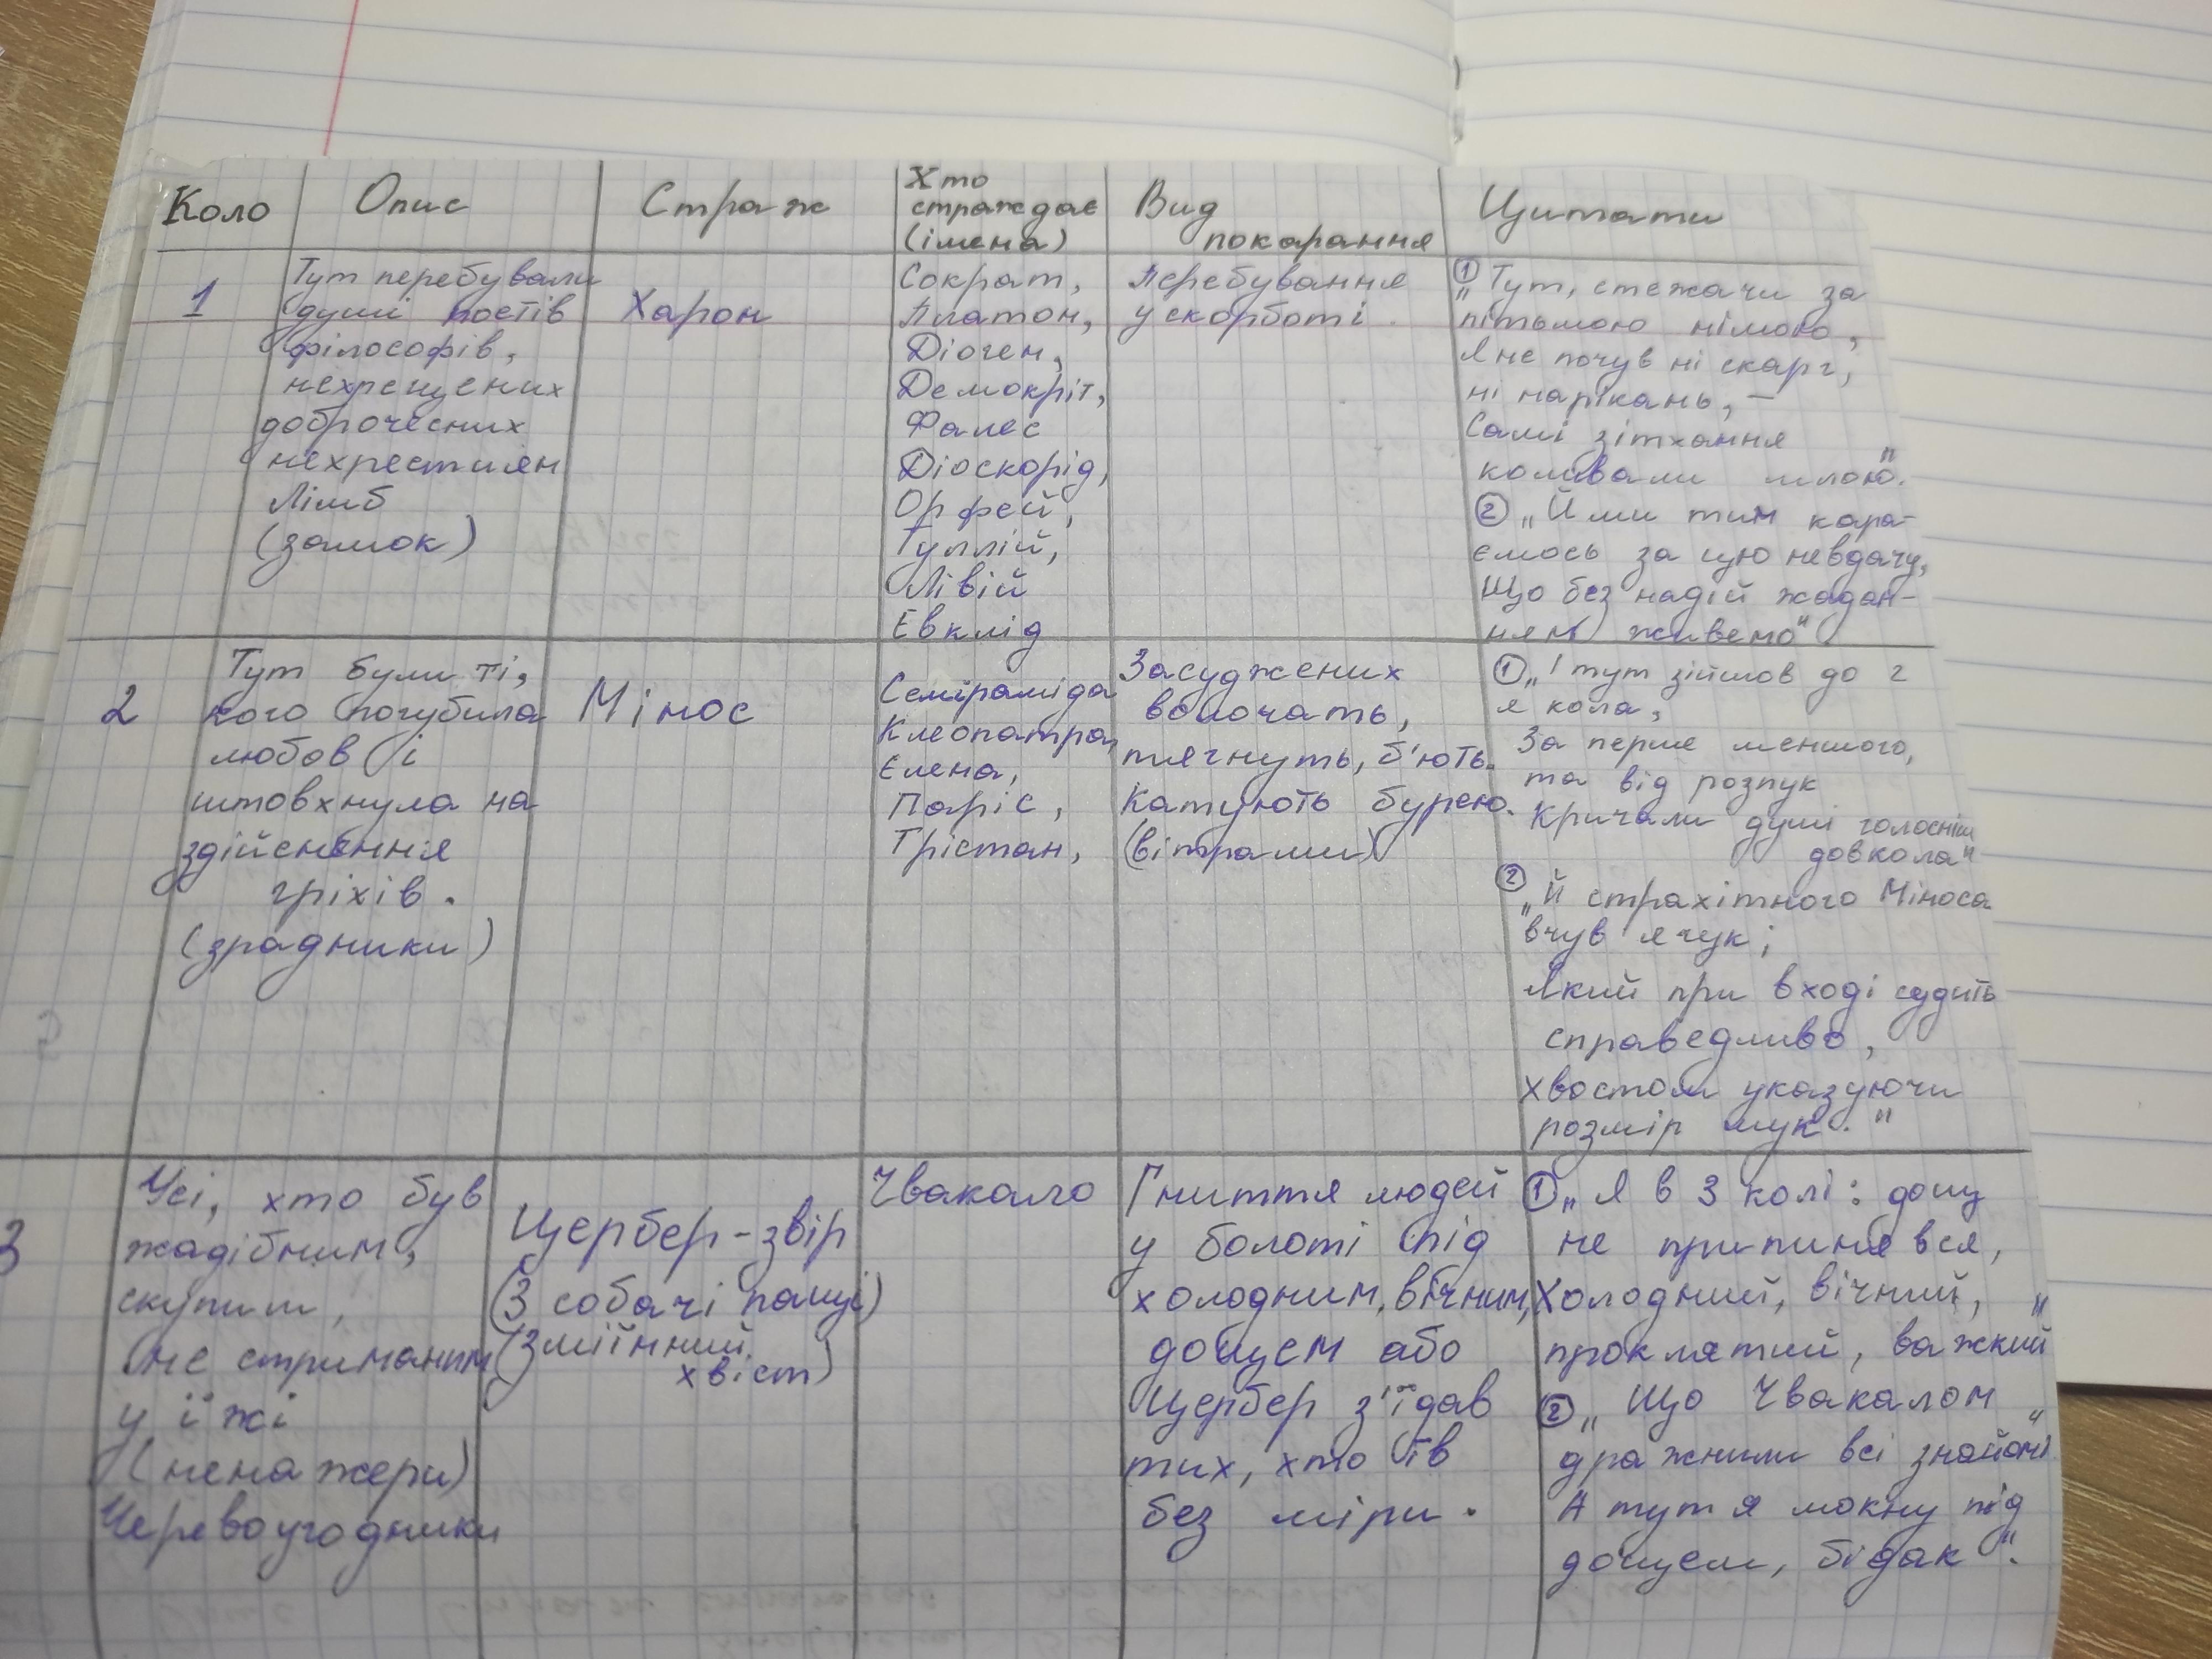 Коло
Опис
Страж
Хто
страждає
(імена)
Вид
покарання
Цитати
1
Тут перебували
душі поетів
філософів,
нехрещених
доброчесних
нехристиян
Лімб
(замок)
Харон
Сократ,
Платон,
Діоген,
Демокріт,
Фалес
Діоскорід,
Орфей,
Туллій,
Лівій
Евклід
Перебування
у скорботі.
① „Тут, стежачи за
пітьмою німою,
Я не почув ні скарг,
ні нарікань, –
Самі зітхання
коливали млою."
② „Й ми тим кара-
ємось за цю невдачу,
Що без надій жадан-
ням живемо"
2
Тут були ті,
кого погубила
любов і
штовхнула на
здійснення
гріхів.
(зрадники)
Мінос
Семіраміда
Клеопатра,
Єлена,
Паріс,
Трістан,
Засуджених
волочать,
тягнуть, б'ють.
Катують бурею.
(вітрами)
① „І тут зійшов до 2
я кола,
За перше меншого,
та від розпук
Кричали душі голосніш
довкола"
② „Й страхітного Міноса
вчув я гук;
Який при вході судить
справедливо,
хвостом указуючи
розмір мук."
3
Усі, хто був
жадібним,
скупим,
не стриманим
у їжі
(ненажери)
Черевоугодники
Цербер - звір
(3 собачі пащі)
(зміїнний
хвіст)
Чвакало
Гниття людей
у болоті під
холодним, вічним,
дощем або
Цербер з'їдав
тих, хто їв
без міри.
① „Я в 3 колі: дощ
не припинявся,
Холодний, вічний,
проклятий, важкий"
② „Що Чвакалом
дражнили всі знайомі"
А тут я мокну під
дощем, бідак".